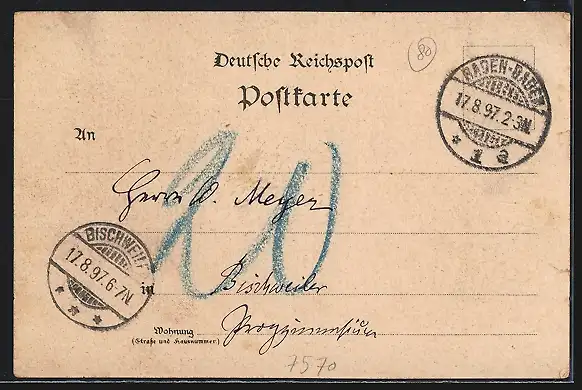 80
Deutsche Reichspost
Postkarte
BADEN-BADEN
17.8.97.2-3N.
* 1 a
An
20
Herrn W. Meyer
BISCHWEILER
17.8.97.6-7N.
* * *
in Bischweiler
Wohnung
(Straße und Hausnummer)
Progymnasium
7570